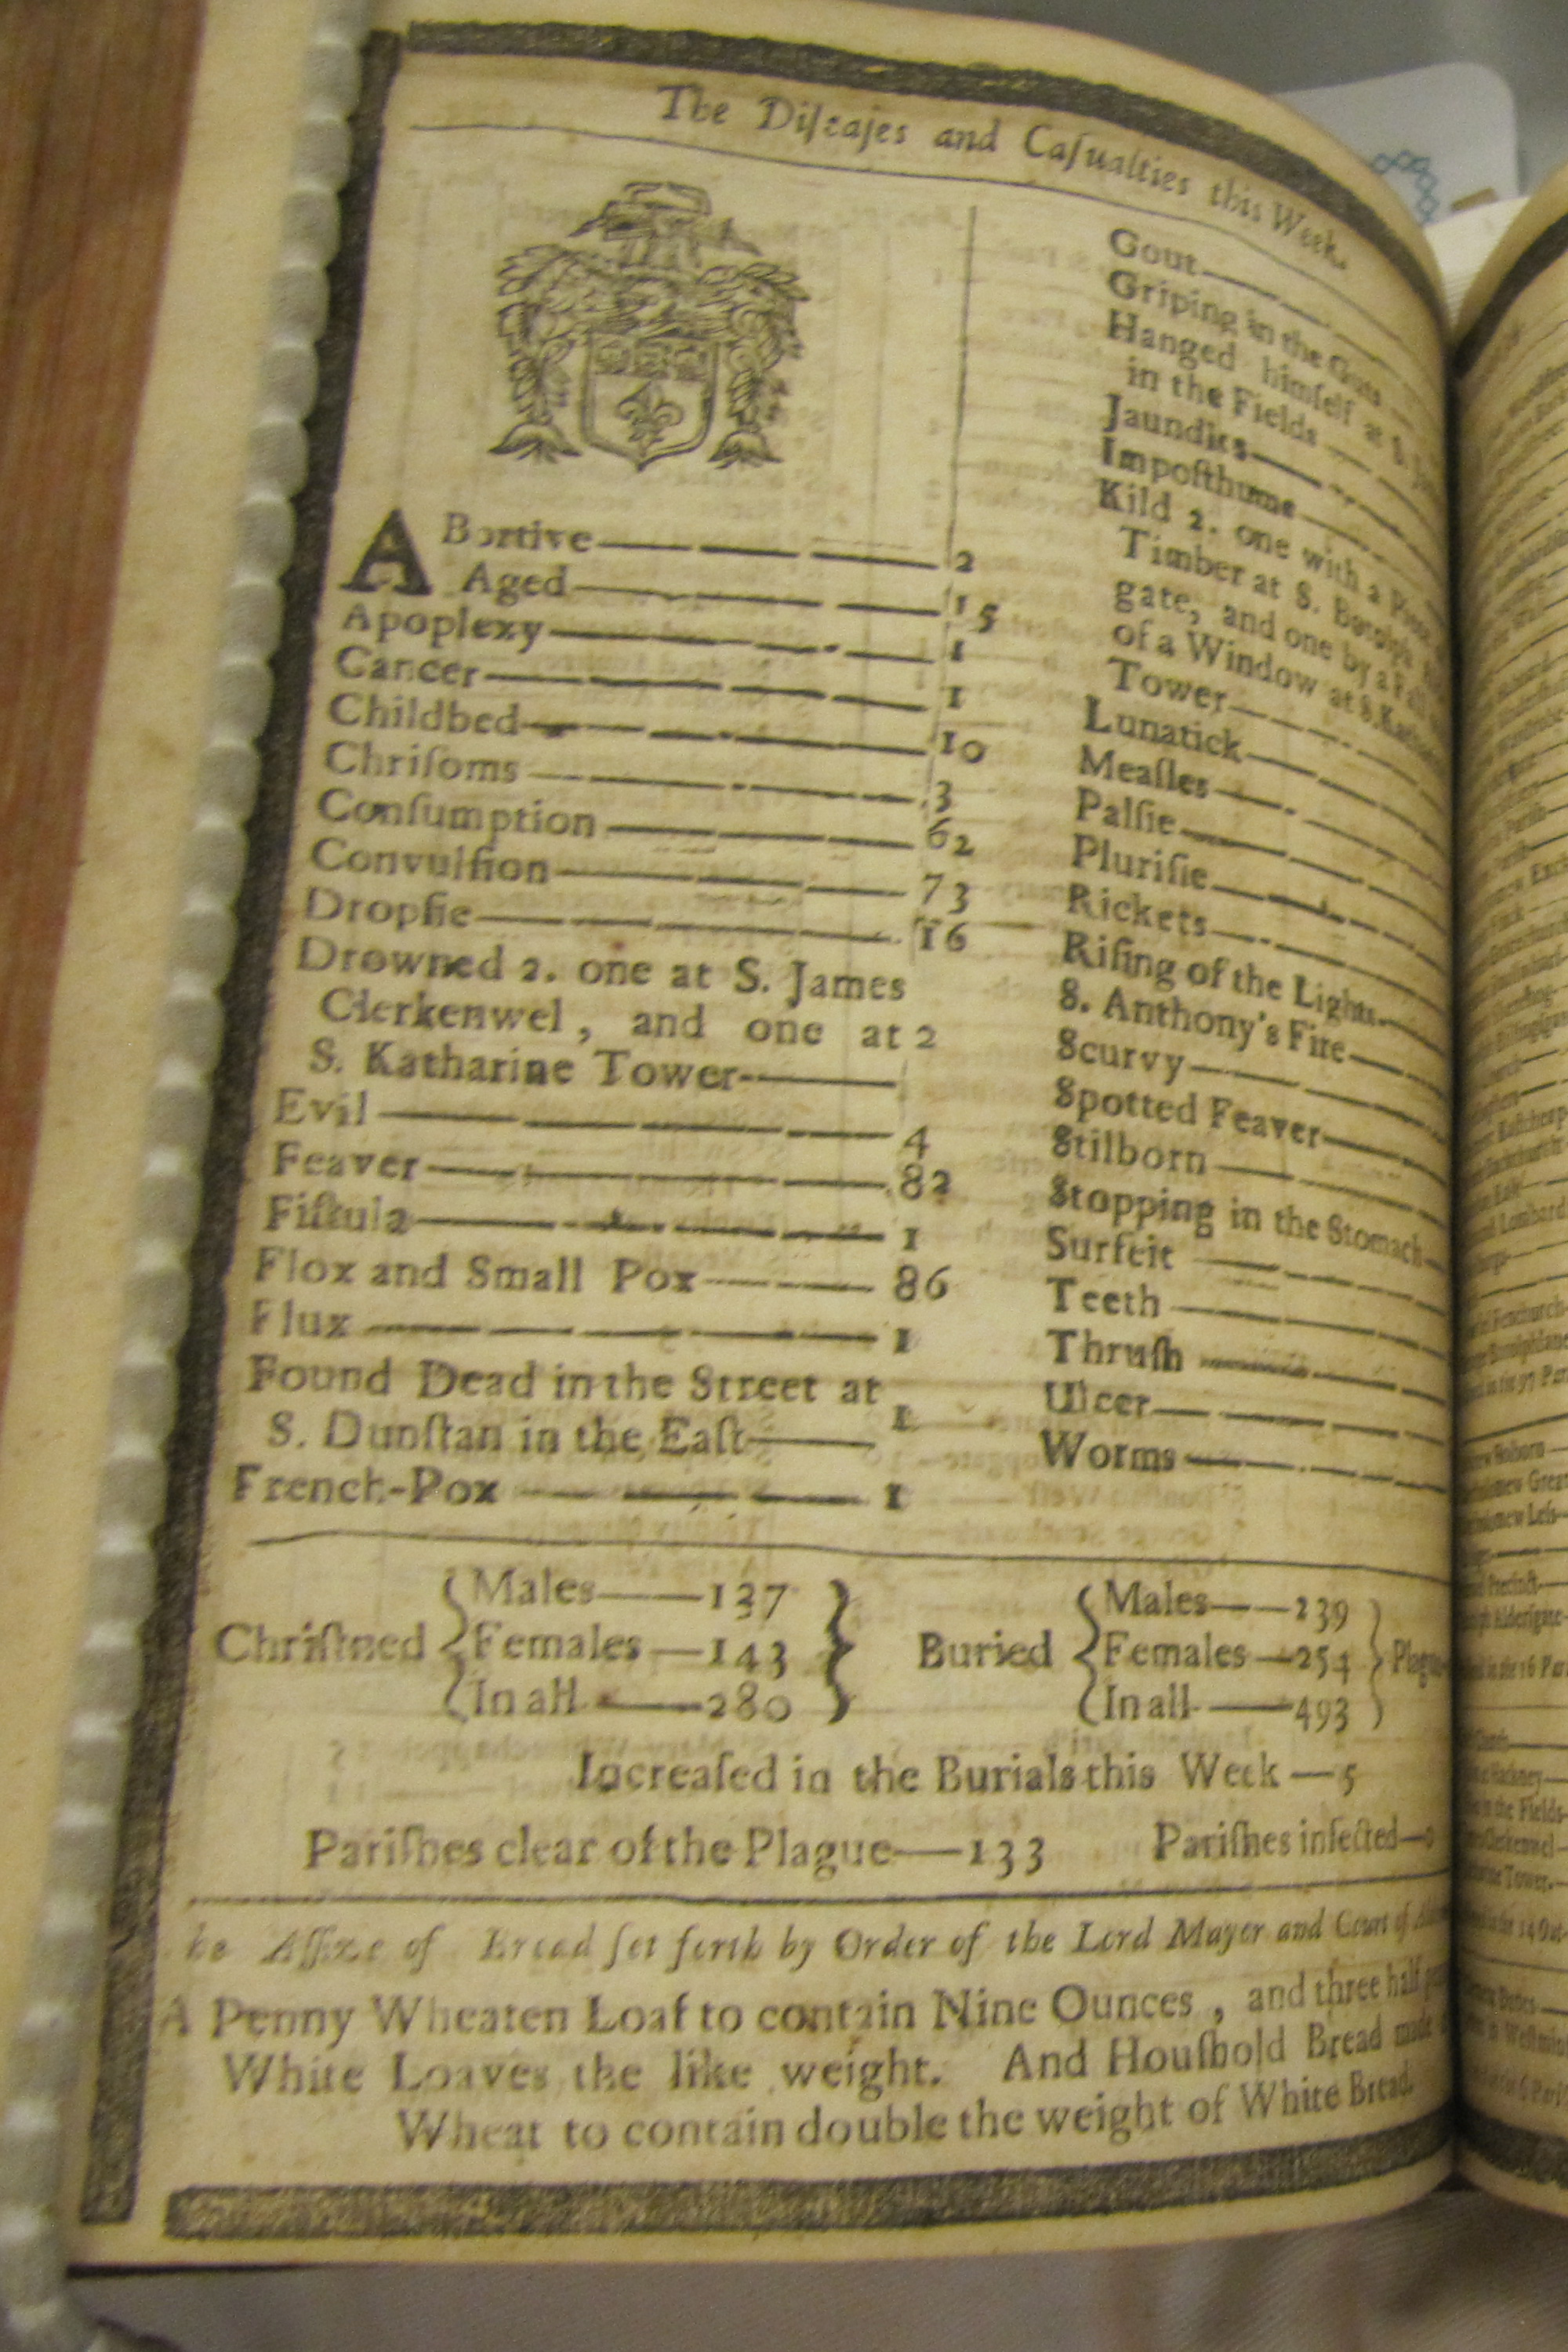 The Diſeaſes and Caſualties this Week.
ABortive 2
Aged 15
Apoplexy 1
Cancer 1
Childbed 10
Chriſoms 3
Conſumption 62
Convulſion 73
Dropſie 16
Drowned 2. one at S. James
Clerkenwel, and one at 2
S. Katharine Tower
Evil 4
Feaver 82
Fiſtula 1
Flox and Small Pox 86
Flux 1
Found Dead in the Street at
S. Dunſtan in the Eaſt 1
French-Pox 1
Gout
Griping in the Guts
Hanged himſelf at S.
in the Fields
Jaundies
Impoſthume
Kild 2. one with a
Timber at S. Botolph
gate, and one by a Fall
of a Window at S. Kath
Tower
Lunatick
Meaſles
Palſie
Pluriſie
Rickets
Riſing of the Lights
S. Anthony's Fire
Scurvy
Spotted Feaver
Stilborn
Stopping in the Stomach
Surfeit
Teeth
Thruſh
Ulcer
Worms
Chriſtned { Males 137 Females 143 In all 280 }
Buried { Males 239 Females 254 In all 493 } Plague
Increaſed in the Burials this Week — 5
Pariſhes clear of the Plague — 133 Pariſhes infected — 0
he Aſſize of Bread ſet forth by Order of the Lord Mayor and Court of
A Penny Wheaten Loaf to contain Nine Ounces, and three half
White Loaves the like weight. And Houſhold Bread made
Wheat to contain double the weight of White Bread.